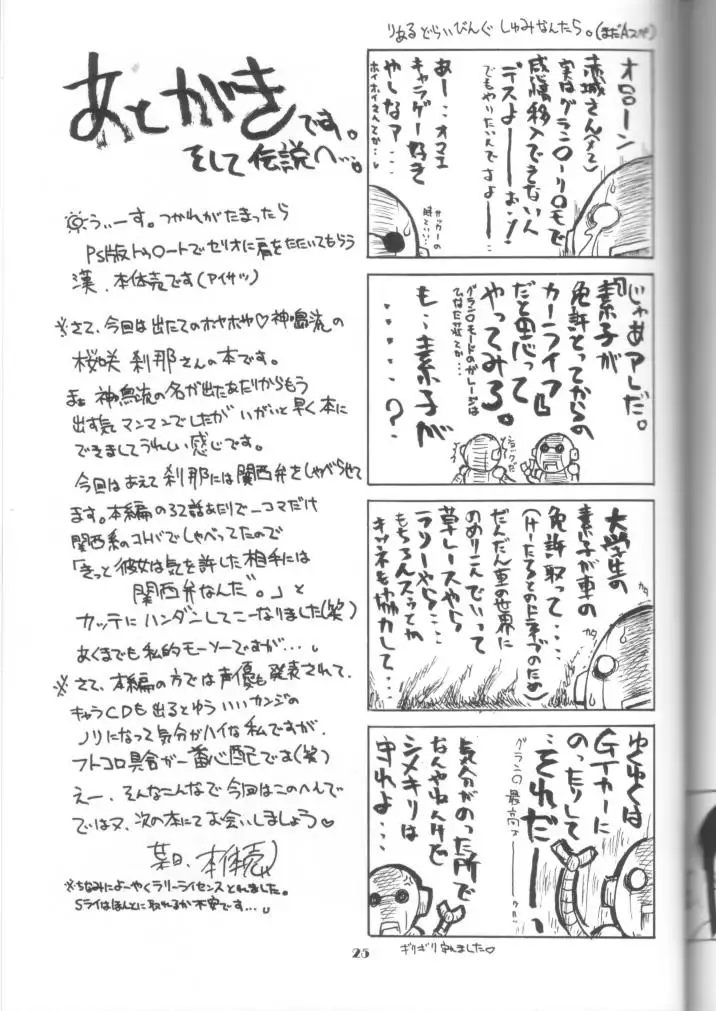 りあるどらいびんぐ しゅみなんたら。(まだAスペ)
オローン
赤城さん(メっ)
実はグラン〇ーリ〇モで
感情移入できない人
デスよーーーおっ!
でもやりたいんですよーー
あーー‥オマエ
キャラゲー好き
やしなァ‥‥
サッカーの
時も‥‥
「じゃあアレだ。
素子が
免許とってからの
カーライフ」
だと思って
やってみろ。
グラン〇モードのガレージは
ひなた荘でか‥‥
も‥素子が
‥‥‥‥?
ショックだ
大学生の
素子が車の
免許取って‥‥
(けーたろとのドライブのため)
だんだん車の世界に
のめりこんでいって
草レースやら
ラリーやら‥‥
もちろんスゥとか
キツネも協力して‥‥
カタ
カタ
ゆくゆくは
GTカーに
のったりして
‥それだーーっ
グラン〇最高ォーーー!!
気分がのった所で
なんやねんけど
シメキリは
守れよ‥‥
ギリギリ守れました♡
あとがきです。
そして伝説へ…。
うぃーす。つかれがたまったら
PS版トゥ〇ートでセリオに肩をたたいてもらう
漢、本体売です(アイサツ)
※さて、今回は出たてのホヤホヤ♡神鳴流の
桜咲 刹那さんの本です。
まぁ神鳴流の名が出たあたりからもう
出す気マンマンでしたがいがいと早く本に
できましてうれしい感じです。
今回はあえて刹那には関西弁をしゃべらせて
ます。本編の37話あたりで一コマだけ
関西系のコトバでしゃべってたので
「きっと彼女は気を許した相手には
関西弁なんだ。」と
カッテにハンダンしてこーなりました(笑)
あくまでも私的モーソーですが…。
※さて、本編の方では声優も発表されて、
キャラCDも出るとゆういいカンジの
ノリになって気分がハイな私ですが、
フトコロ具合が一番心配です(笑)
えー、そんなこんなで今回はこのへんで
ではヌ、次の本にてお会いしましょう♡
某日、本体売
※ちなみによーやくラリーライセンスとれました。
Sライはほんとに取れるか不安です…。
25